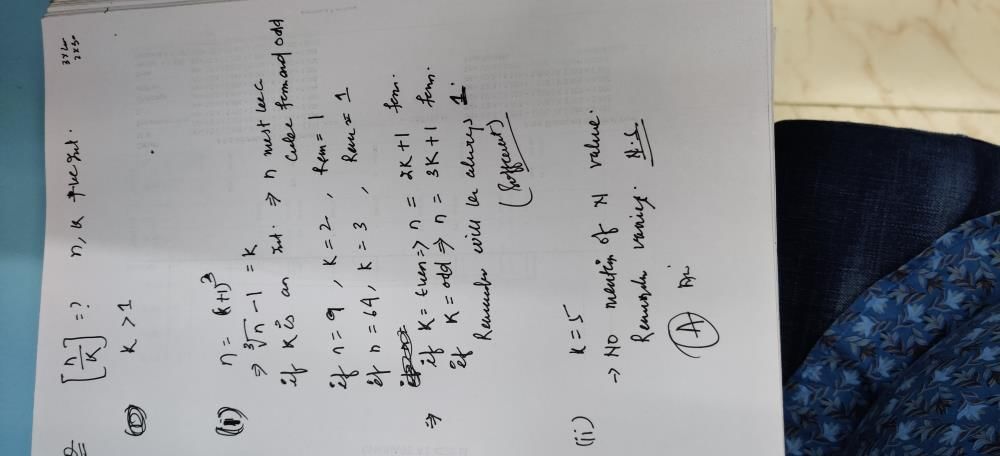 Q [n/K] = ? n, K +ve Int. 3x20
2x30
K > 1
(i) n = (k+1)³
⇒ ∛n - 1 = K
if K is an Int. ⇒ n must be a
cube form and odd
if n = 9, K = 2, Rem = 1
if n = 64, K = 3, Rem = 1
⇒ if K = Even => n = 2K+1 form.
if K = odd => n = 3K+1 form.
Remainder will be always 1.
(Sufficient)
(ii) K = 5
→ No mention of N value.
Remainder varies. N.S
(A) Ans